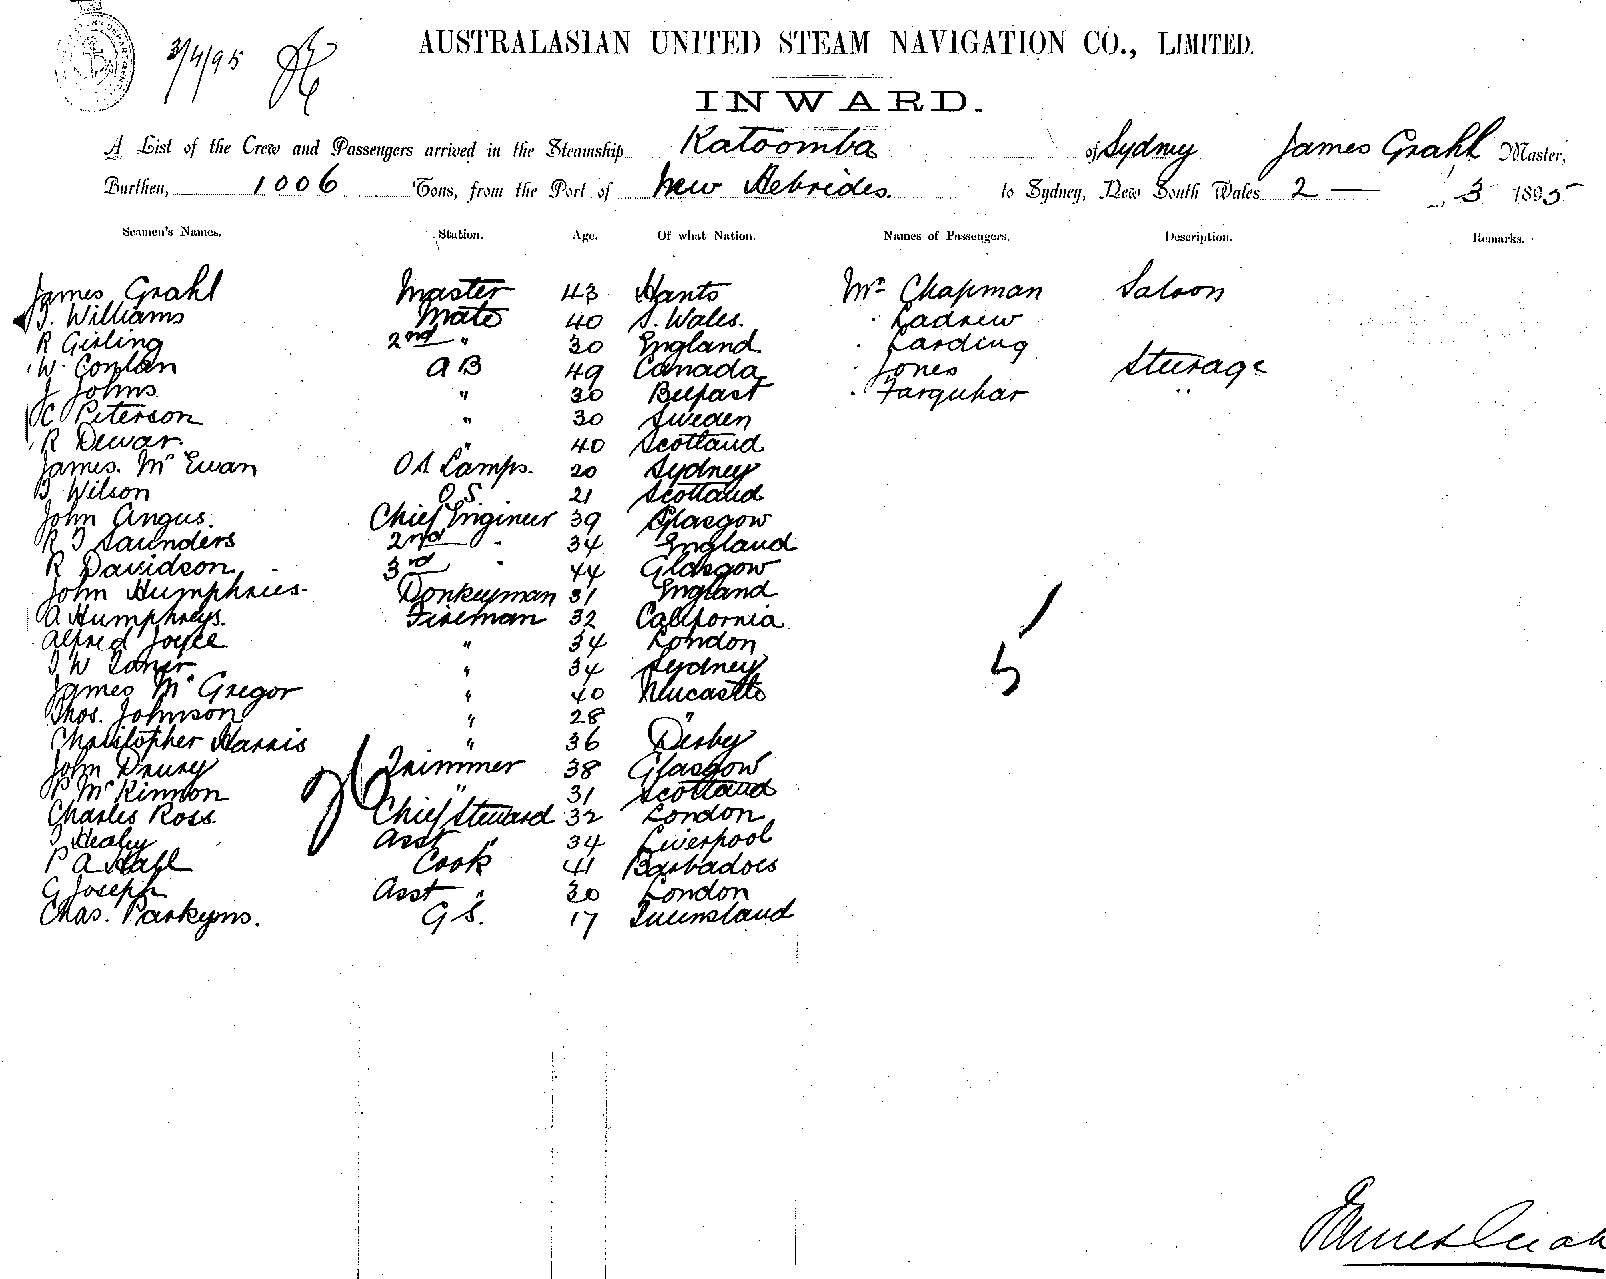 3/4/95
AUSTRALASIAN UNITED STEAM NAVIGATION CO., LIMITED.
INWARD.
A List of the Crew and Passengers arrived in the Steamship Katoomba of Sydney James Grahl Master,
Burthen, 1006 Tons, from the Port of New Hebrides. to Sydney, New South Wales 2 — 3 1895
Seamen's Names. Station. Age. Of what Nation. Names of Passengers. Description. Remarks.
James Grahl Master 43 Hants Mr Chapman Saloon
J. Williams Mate 40 S. Wales. " Ladrew
R Girling 2nd " 30 England " Larding
W. Conlan AB 49 Canada " Jones Steerage
J Johns " 30 Belfast " Farquhar "
C Peterson " 30 Sweden
R Dewar. " 40 Scotland
James. McEwan OS Lamps. 20 Sydney
B Wilson O.S. 21 Scotland
John Angus. Chief Engineer 39 Glasgow
R J Saunders 2nd " 34 England
R Davidson 3rd " 44 Glasgow
John Humphries. Donkeyman 31 England
A Humphreys. Fireman 32 California
Alfred Joyce " 34 London
J W " 34 Sydney
James McGregor " 40 Newcastle
Thos. Johnson " 28 "
Christopher Harris " 36 Derby
John Drury Trimmer 38 Glasgow
P McKinnon " 31 Scotland
Charles Ross Chief Steward 32 London
J Healey Asst " 34 Liverpool
P A Hall Cook 41 Barbadoes
G Joseph Asst " 30 London
Chas. Parkyns. G S. 17 Queensland
26
5